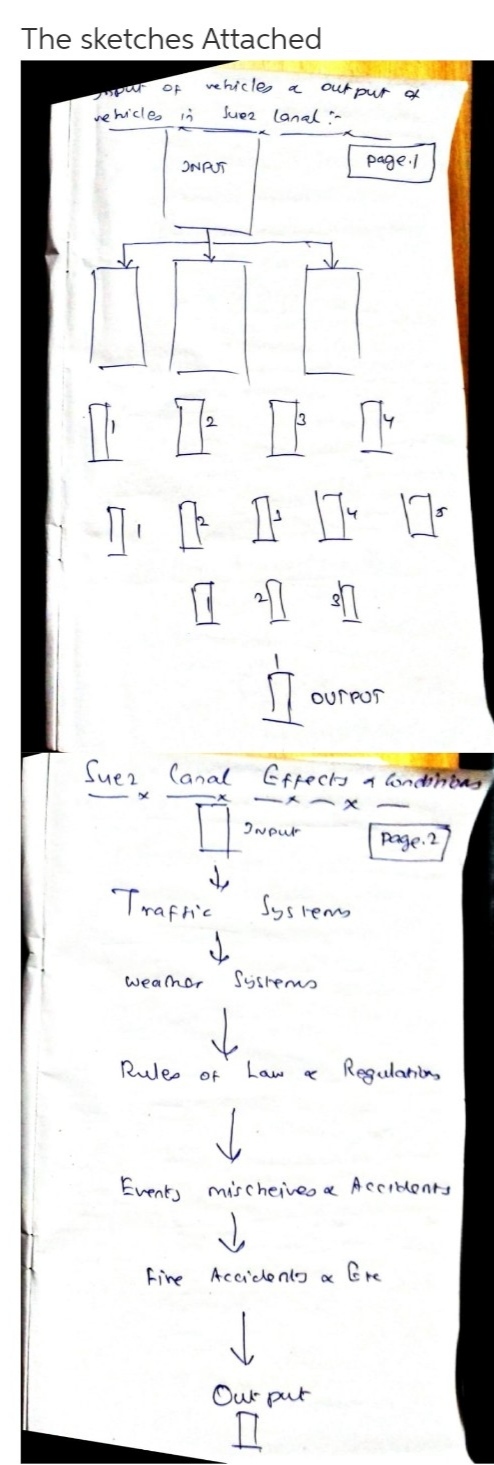 The sketches Attached
Input of vehicles & output of
vehicles in Suez Canal :-
INPUT
page.1
1 2 3 4
1 2 3 4 5
1 2 3
1
OUTPUT
Suez Canal Effects & Conditions
Input
page.2
Traffic Systems
weather Systems
Rules of Law & Regulations
Events mischeives & Accidents
Fire Accidents & Etc
Output